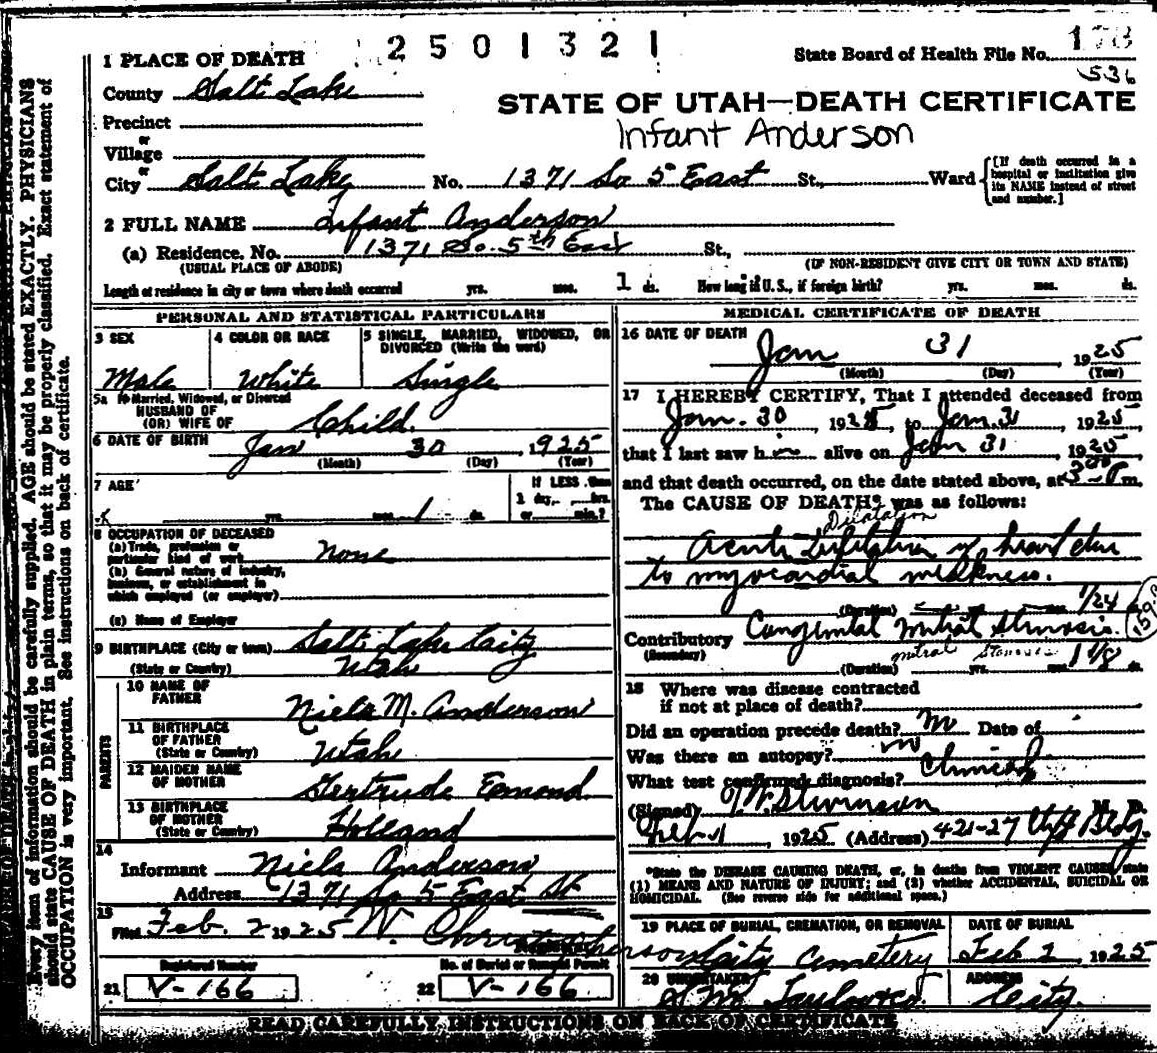 2501321
1 PLACE OF DEATH
State Board of Health File No. 178
536
County Salt Lake
STATE OF UTAH—DEATH CERTIFICATE
Infant Anderson
Precinct
or
Village
or
City Salt Lake No. 1371 So 5 East St., Ward
[If death occurred in a hospital or institution give its NAME instead of street and number.]
2 FULL NAME Infant Anderson
(a) Residence. No. 1371 So. 5th East St.,
(USUAL PLACE OF ABODE) (IF NON-RESIDENT GIVE CITY OR TOWN AND STATE)
Length of residence in city or town where death occurred yrs. mos. 1 ds. How long in U.S., if foreign birth? yrs. mos. ds.
PERSONAL AND STATISTICAL PARTICULARS
3 SEX
Male
4 COLOR OR RACE
White
5 SINGLE, MARRIED, WIDOWED, OR DIVORCED (Write the word)
Single
5a If Married, Widowed, or Divorced
HUSBAND OF
(OR) WIFE OF Child.
6 DATE OF BIRTH Jan 30, 1925
(Month) (Day) (Year)
7 AGE
yrs. mos. 1 ds.
If LESS than
1 day, hrs.
or min.?
8 OCCUPATION OF DECEASED
(a) Trade, profession or
particular kind of work none
(b) General nature of industry,
business, or establishment in
which employed (or employer)
(c) Name of Employer
9 BIRTHPLACE (City or town) Salt Lake City
(State or Country) Utah
PARENTS
10 NAME OF
FATHER Niels M. Anderson
11 BIRTHPLACE
OF FATHER
(State or Country) Utah
12 MAIDEN NAME
OF MOTHER Gertrude Edmond
13 BIRTHPLACE
OF MOTHER
(State or Country) Holland
14
Informant Niels Anderson
Address 1371 So 5 East St
15
Filed Feb. 2 1925 W. Christopherson
Registered Number
21 V-166
No. of Burial or Removal Permit
22 V-166
MEDICAL CERTIFICATE OF DEATH
16 DATE OF DEATH
Jan 31 1925
(Month) (Day) (Year)
17 I HEREBY CERTIFY, That I attended deceased from
Jan. 30, 1925, to Jan. 31, 1925,
that I last saw h im alive on Jan 31, 1925
and that death occurred, on the date stated above, at 3 00 P m.
The CAUSE OF DEATH* was as follows:
Dilatation
Acute of heart due
to myocardial weakness.
(Duration) 1/24
Contributory Congenital Mitral Stenosis
(Secondary) mitral Stenosis
(Duration) yrs. mos. 1 1/8 ds.
18 Where was disease contracted
if not at place of death?
Did an operation precede death? no Date of
Was there an autopsy? no
What test confirmed diagnosis? Clinical
(Signed) Stevenson M. D.
Feb 1 1925 (Address) 421-27 Bldg.
*State the DISEASE CAUSING DEATH, or, in deaths from VIOLENT CAUSES, state
(1) MEANS AND NATURE OF INJURY; and (2) whether ACCIDENTAL, SUICIDAL OR
HOMICIDAL. (See reverse side for additional space.)
19 PLACE OF BURIAL, CREMATION, OR REMOVAL
City Cemetery
DATE OF BURIAL
Feb 2 1925
20 UNDERTAKER
S. M. Taylor & Co.
ADDRESS
City.
READ CAREFULLY INSTRUCTIONS ON BACK OF CERTIFICATE
Every item of information should be carefully supplied. AGE should be stated EXACTLY. PHYSICIANS
should state CAUSE OF DEATH in plain terms, so that it may be properly classified. Exact statement of
OCCUPATION is very important. See instructions on back of certificate.